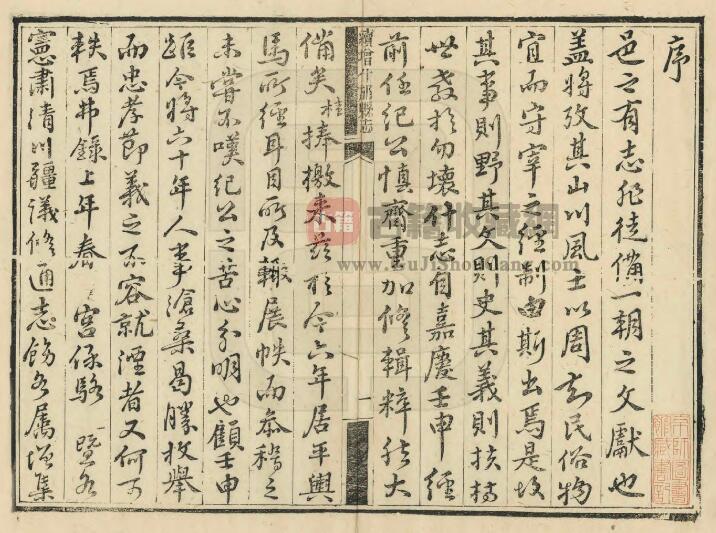 序
邑之有志非徒備一朝之文獻也
盖將攷其山川風土以周知民俗物
宜而守宰之經制由斯出焉是故
其事則野其文則史其義則扶持
世教於勿壞什志自嘉慶壬申經
前任紀公慎齋重加修輯粹然大
續增什邡縣志
一
備矣桂捧檄来茲於今六年居平輿
馬所經耳目所及輙展帙而叅稽之
未嘗不嘆紀公之苦心分明也顧壬申
距今將六十年人事滄桑曷勝枚舉
而忠孝節義之不容就湮者又何可
軼焉弗錄上年春 宮保駱 暨各
憲肅清川疆議修通志飭各屬增集
古籍
古籍收藏網
www.GuJiShouCang.com